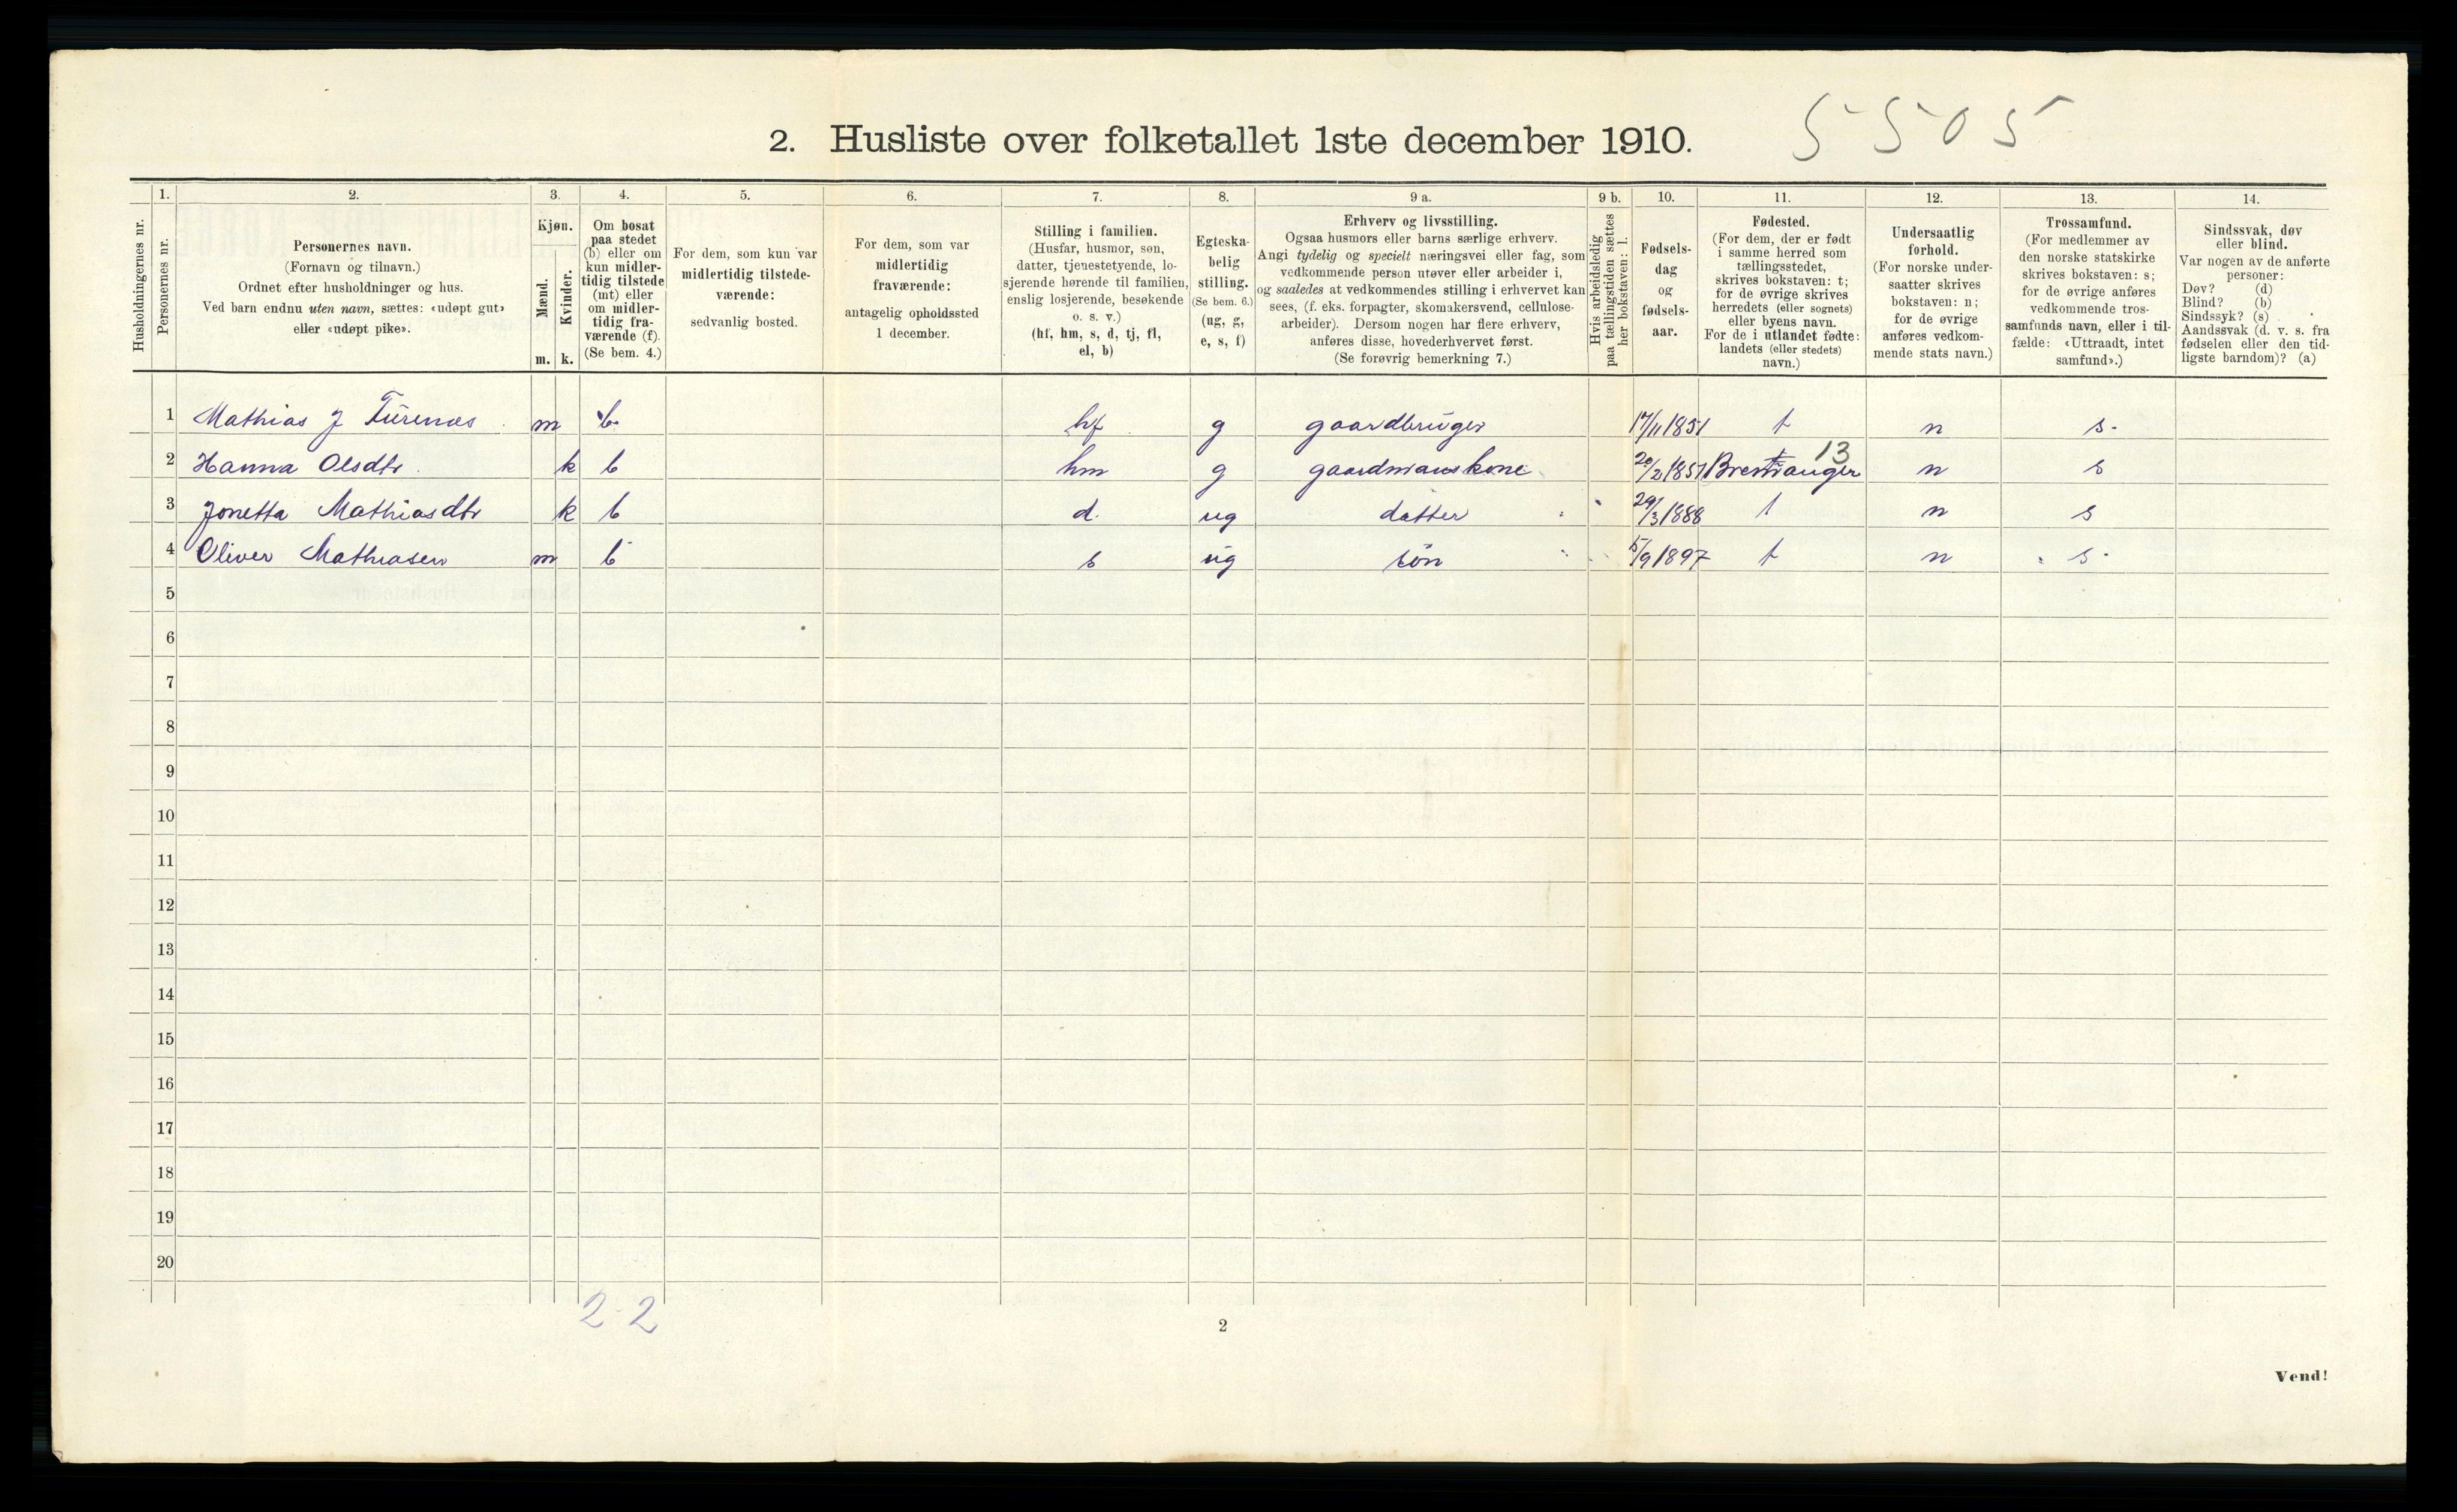 2. Husliste over folketallet 1ste december 1910. 5505
Husholdningernes nr.
1.
Personernes nr.
2.
Personernes navn.
(Fornavn og tilnavn.)
Ordnet efter husholdninger og hus.
Ved barn endnu uten navn, sættes: «udøpt gut»
eller «udøpt pike».
3.
Kjøn.
Mænd.
Kvinder.
m. k.
4.
Om bosat
paa stedet
(b) eller om
kun midler-
tidig tilstede
(mt) eller
om midler-
tidig fra-
værende (f).
(Se bem. 4.)
5.
For dem, som kun var
midlertidig tilstede-
værende:
sedvanlig bosted.
6.
For dem, som var
midlertidig
fraværende:
antagelig opholdssted
1 december.
7.
Stilling i familien.
(Husfar, husmor, søn,
datter, tjenestetyende, lo-
sjerende hørende til familien,
enslig losjerende, besøkende
o. s. v.)
(hf, hm, s, d, tj, fl,
el, b)
8.
Egteska-
belig
stilling.
(Se bem. 6.)
(ug, g,
e, s, f)
9 a.
Erhverv og livsstilling.
Ogsaa husmors eller barns særlige erhverv.
Angi tydelig og specielt næringsvei eller fag, som
vedkommende person utøver eller arbeider i,
og saaledes at vedkommendes stilling i erhvervet kan
sees, (f. eks. forpagter, skomakersvend, cellulose-
arbeider). Dersom nogen har flere erhverv,
anføres disse, hovederhvervet først.
(Se forøvrig bemerkning 7.)
9 b.
Hvis arbeidsledig
paa tællingstiden sættes
her bokstaven: l.
10.
Fødsels-
dag
og
fødsels-
aar.
11.
Fødested.
(For dem, der er født
i samme herred som
tællingsstedet,
skrives bokstaven: t;
for de øvrige skrives
herredets (eller sognets)
eller byens navn.
For de i utlandet fødte:
landets (eller stedets)
navn.)
12.
Undersaatlig
forhold.
(For norske under-
saatter skrives
bokstaven: n;
for de øvrige
anføres vedkom-
mende stats navn.)
13.
Trossamfund.
(For medlemmer av
den norske statskirke
skrives bokstaven: s;
for de øvrige anføres
vedkommende tros-
samfunds navn, eller i til-
fælde: «Uttraadt, intet
samfund».)
14.
Sindssvak, døv
eller blind.
Var nogen av de anførte
personer:
Døv? (d)
Blind? (b)
Sindssyk? (s)
Aandssvak (d. v. s. fra
fødselen eller den tid-
ligste barndom)? (a)
1 Mathias J m b. hf g gaardbruger 17/11 1851 t n s.
13
2 Hanna Olsdtr. k b hm g gaardmanskone 20/2 1851 n s
3 Jonetta Mathiasdtr k b d. ug datter 29/3 1888 t n s
4 Oliver Mathiasen m b s ug søn 5/9 1897 t n s.
5
6
7
8
9
10
11
12
13
14
15
16
17
18
19
20
2-2
2
Vend!